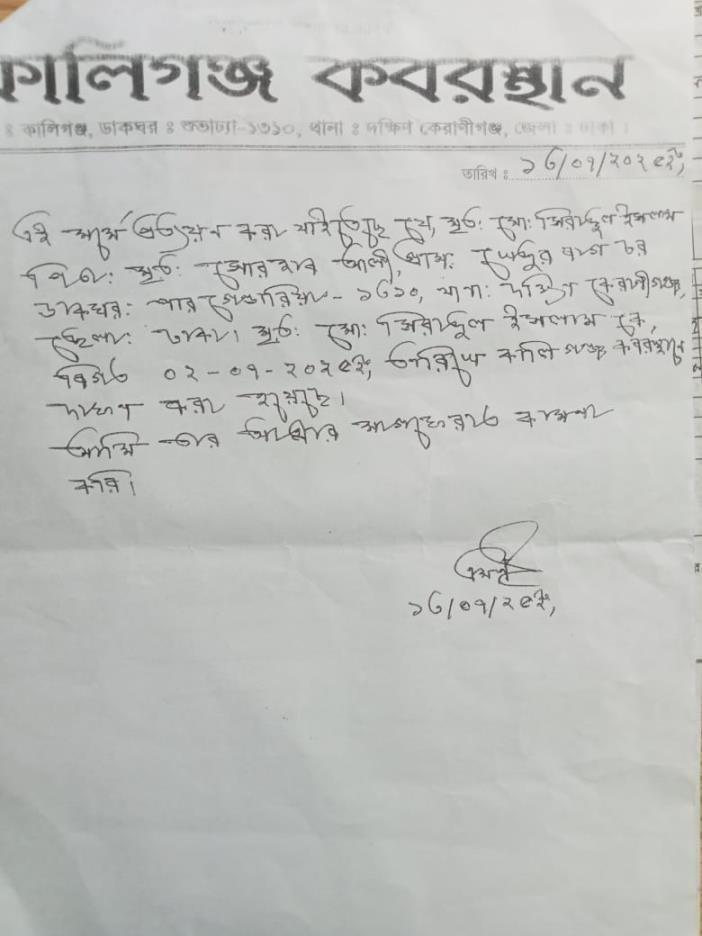 কালিগঞ্জ কবরস্থান
ঃ কালিগঞ্জ, ডাকঘর ঃ শুভাঢ্যা-১৩১০, থানা ঃ দক্ষিণ কেরাণীগঞ্জ, জেলা ঃ ঢাকা।
তারিখ ঃ ১৬/০৭/২০২৫ইং,
এই মর্মে প্রত্যয়ন করা যাইতেছে যে, মৃত: মো: সিরাজুল ইসলাম
পিতা: মৃত: জোরহাব আলী, গ্রাম: খেজুর বাগ চর
ডাকঘর: পারগেন্ডারিয়া - ১৬১০, থানা: দক্ষিণ কেরাণীগঞ্জ,
জেলা: ঢাকা। মৃত: মো: সিরাজুল ইসলাম কে,
বিগত ০২-০৭-২০২৫ইং, তারিখে কালিগঞ্জ কবরস্থানে
দাফন করা হয়েছে।
আমি তার আত্মার মাগফেরাত কামনা
করি।
১৬/০৭/২৫ইং,